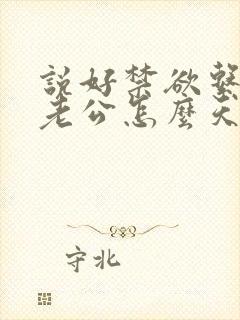 説好禁欲繫
老公怎麼天
守北